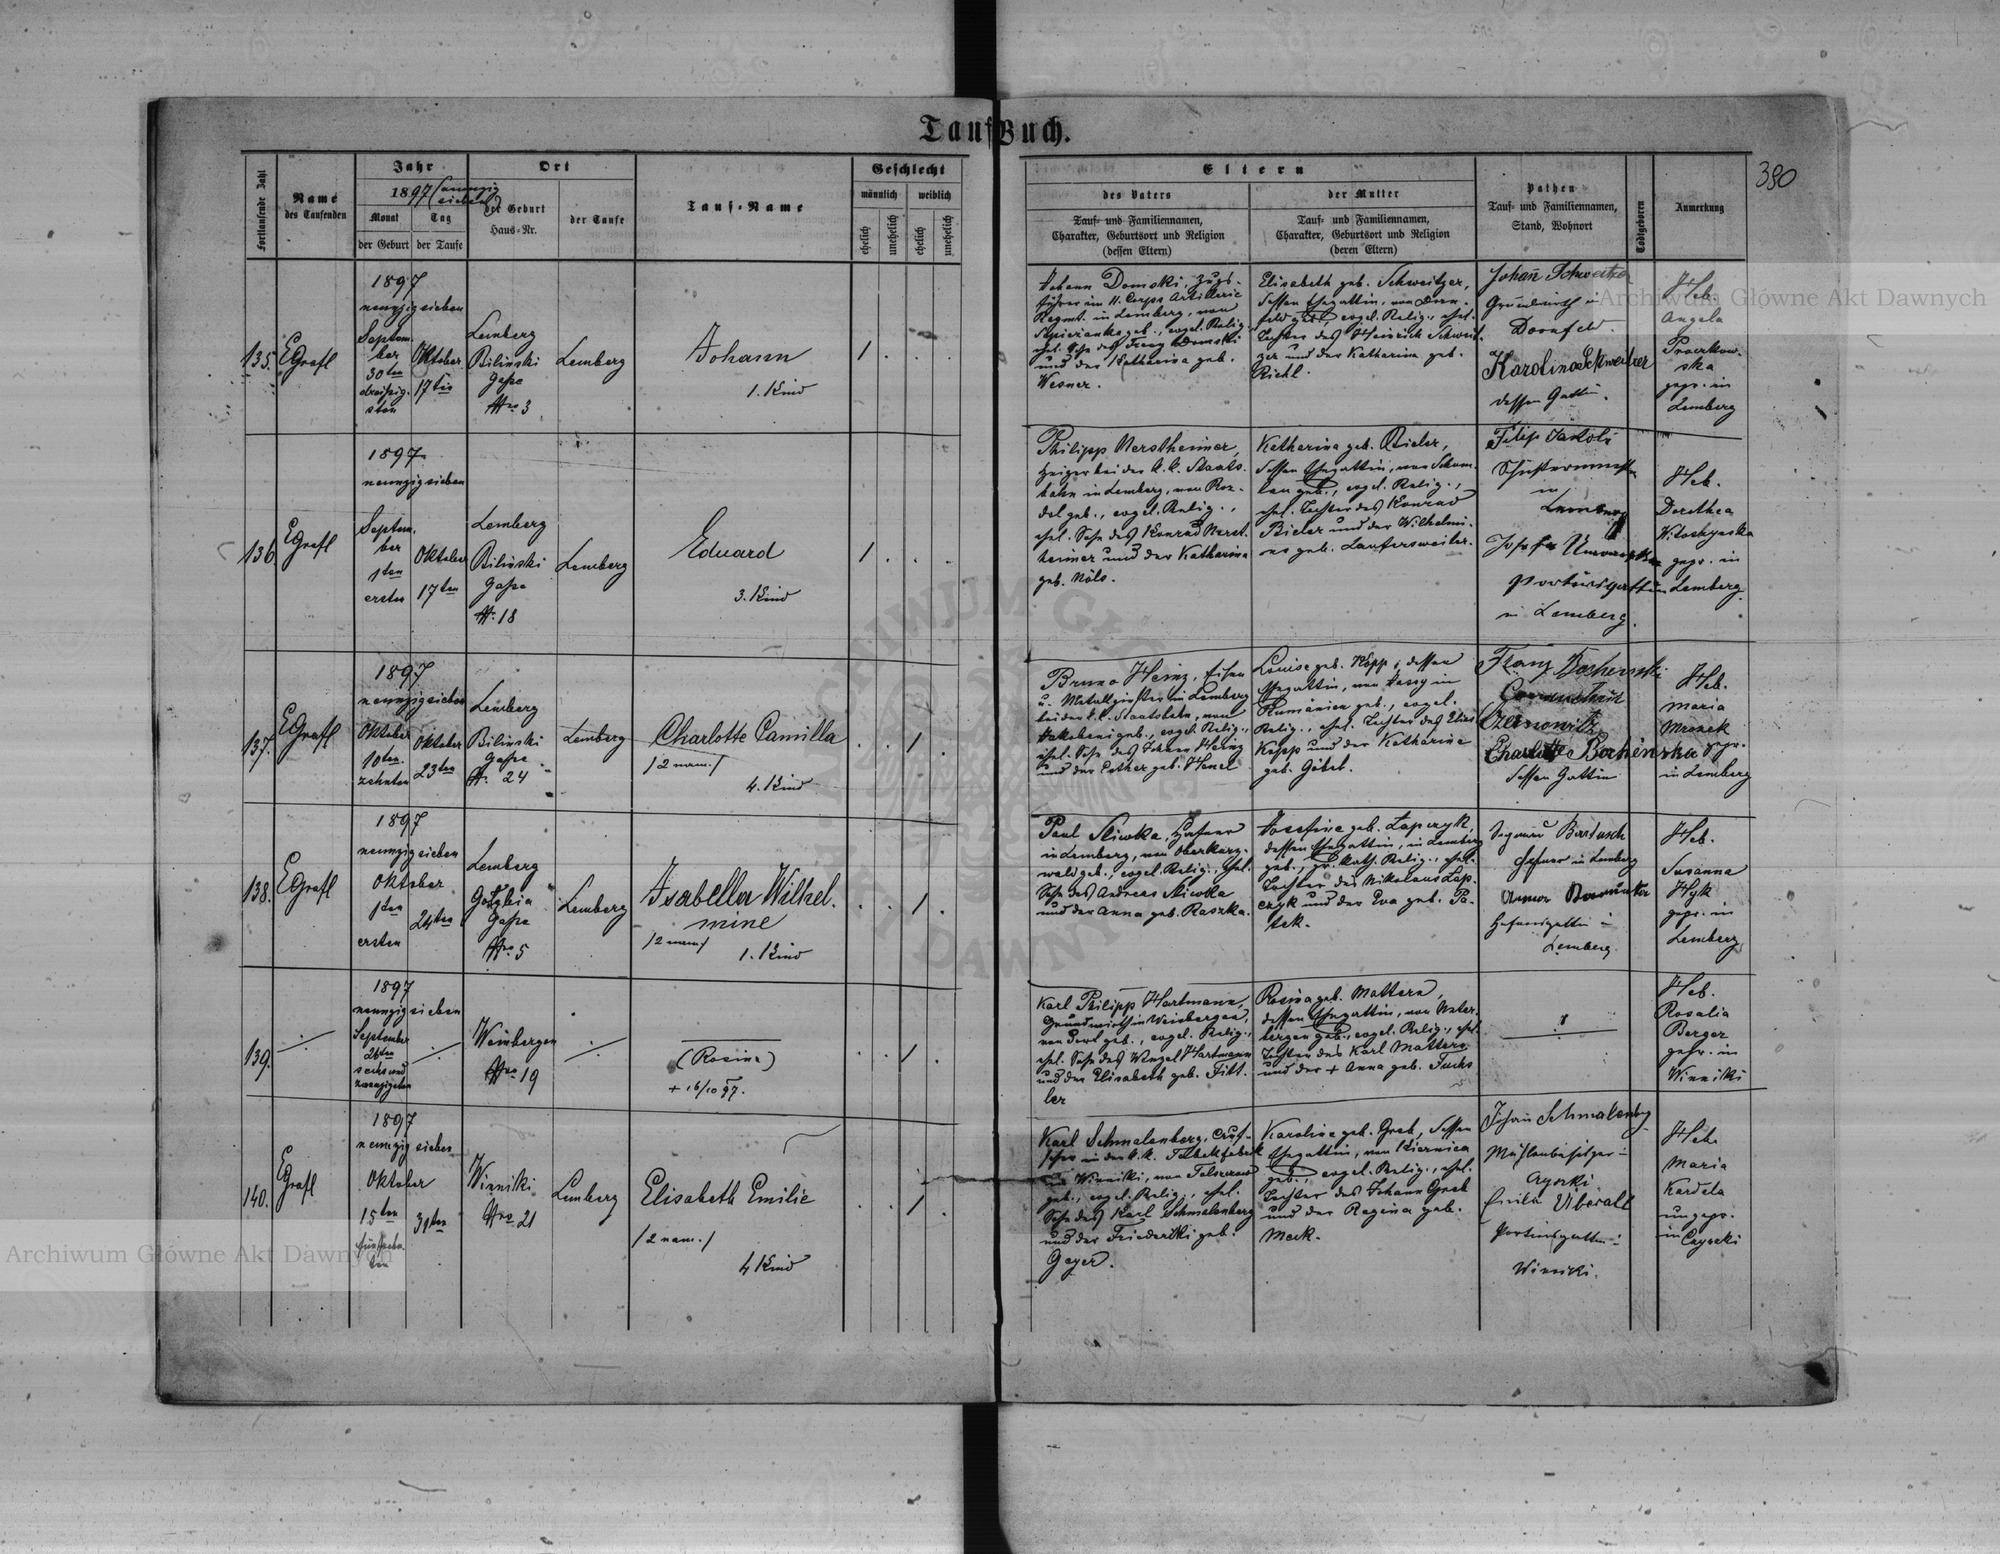 TaufBuch.
380
Fortlaufende Zahl
Name
des Taufenden
Jahr
1897
Monat
Tag
der Geburt
der Taufe
Ort
der Geburt
Haus-Nr.
der Taufe
Tauf-Name
Geschlecht
männlich
weiblich
ehelich
unehelich
ehelich
unehelich
Eltern
des Vaters
Tauf- und Familiennamen,
Charakter, Geburtsort und Religion
(dessen Eltern)
der Mutter
Tauf- und Familiennamen,
Charakter, Geburtsort und Religion
(deren Eltern)
Pathen
Tauf- und Familiennamen,
Stand, Wohnort
Todtgeboren
Anmerkung
135.
EGrafl
1897
neunzigsieben
Septem-
ber
30ten
dreißig-
sten
Oktober
17ten
Lemberg
Bilinski
Gasse
Nro 3
Lemberg
Johann
1. Kind
Johann Domski, Zugs-
führer im 11. Corps Artillerie
Regmt. in Lemberg, von
geb., evgl. Relig.,
ehel. Sohn des Franz Domski
und der Katharina geb.
Wesner.
Elisabeth geb. Schweitzer,
dessen Ehegattin, von Dorn-
feld geb., evgel. Relig., ehel.
Tochter des Heinrich Schweit-
zer und der Katharina geb.
Richl.
Johann Schweitzer
Grundwirth in
Dornfeld.
Karolina Schweitzer
dessen Gattin.
Heb.
Angela
gepr. in
Lemberg
136
EGrafl
1897
neunzigsieben
Septem-
ber
1ten
ersten
Oktober
17ten
Lemberg
Bilinski
Gasse
Nr. 18
Lemberg
Eduard
3. Kind
Philipp Nerstheimer,
Heizer bei der k. k. Staats-
bahn in Lemberg, von Roz-
dol geb., evgel. Relig.,
ehel. Sohn des Konrad Nerst-
heimer und der Katharina
geb. Nöls.
Katharina geb. Bieler,
dessen Ehegattin, von
geb., evgel. Relig.,
ehel. Tochter des Konrad
Bieler und der Wilhelmi-
ne geb. Laufersweiler.
Filip Jakobi
Schustermeister
in
Lemberg
in Lemberg.
Heb.
Dorothea
gepr. in
Lemberg.
137.
EGrafl
1897
neunzigsieben
Oktober
10ten
zehnten
Oktober
23ten
Lemberg
Bilinski
Gasse
Nr. 24
Lemberg
Charlotte Camilla
/2 nam./
4. Kind
Bruno Heinz, Eisen
u. Metallgießer in Lemberg
bei der k. k. Staatsbahn, von
Jakobeni geb., evgel. Relig.,
ehel. Sohn des Johann Heinz
und der Esther geb. Henel
Louise geb. Kopp, dessen
Ehegattin, von Jassy in
Rumänien geb., evgel.
Relig., ehel. Tochter des Elias
Kopp und der Katharina
geb. Göbel.
Franz Bochenski
Czernowitz
Charlotte Bochenska
dessen Gattin
Heb.
Maria
Mrozek
gepr.
in Lemberg
138.
EGrafl
1897
neunzigsieben
Oktober
1ten
ersten
24ten
Lemberg
Gasse
Nro. 5
Lemberg
Isabella Wilhel-
mine
/2 nam/
1. Kind
Paul Sliwka, Hafner
in Lemberg, von Oberkurz-
wald geb., evgel. Relig., ehel.
Sohn des Andreas Sliwka
und der Anna geb. Raszka.
Josefine geb. Lapczyk,
dessen Ehegattin, in Lemberg
geb., gr. kath. Relig., ehel.
Tochter des Nikolaus Lap-
czyk und der Eva geb. Pa-
tek.
Bartusch
Hafner in Lemberg
Hafnersgattin in
Lemberg.
Heb.
Susanna
Hyk
gepr. in
Lemberg
139.
1897
neunzigsieben
September
26ten
sechsund
zwanzigsten
Weinbergen
Nro 19
(Rosina)
+ 16/10 97.
Karl Philipp Hartmann,
Grundwirth in Weinbergen,
von geb., evgel. Relig.,
ehel. Sohn des Wenzel Hartmann
und der Elisabeth geb. Fitt-
ler
Rosina geb. Mattern,
dessen Ehegattin, von Unter-
bergen geb., evgel. Relig., ehel.
Tochter des Karl Mattern
und der + Anna geb. Fuchs
Heb.
Rosalia
Berger
gepr. in
Winniki
140.
EGrafl
1897
neunzigsieben
Oktober
15ten
fünfzehn-
ten
31ten
Winniki
Nro. 21
Lemberg
Elisabeth Emilie
/2 nam./
4 Kind
Karl Schmalenberg,
in der k. k. Tabakfabrik
in Winniki, von
geb., evgel. Relig., ehel.
Sohn des Karl Schmalenberg
und der Friederiki geb.
Geyer.
Karoline geb. Greb, dessen
Ehegattin, von Kiernica
geb., evgel. Relig., ehel.
Tochter des Johann Greb
und der Regina geb.
Mack.
Johann Schmalenberg
Mühlenbesitzer in
Emilie Überall
Winniki.
Heb.
Maria
Kardela
ungepr.
in
Archiwum Główne Akt Dawnych
Archiwum Główne Akt Dawnych